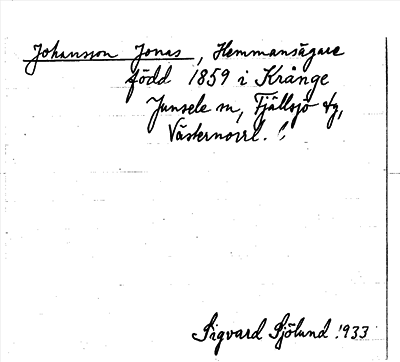 Johansson Jonas, Hemmansägare
född 1859 i Krånge
Junsele sn, Fjällsjö tg,
Västernorrl. l.
Sigvard Sjölund 1933